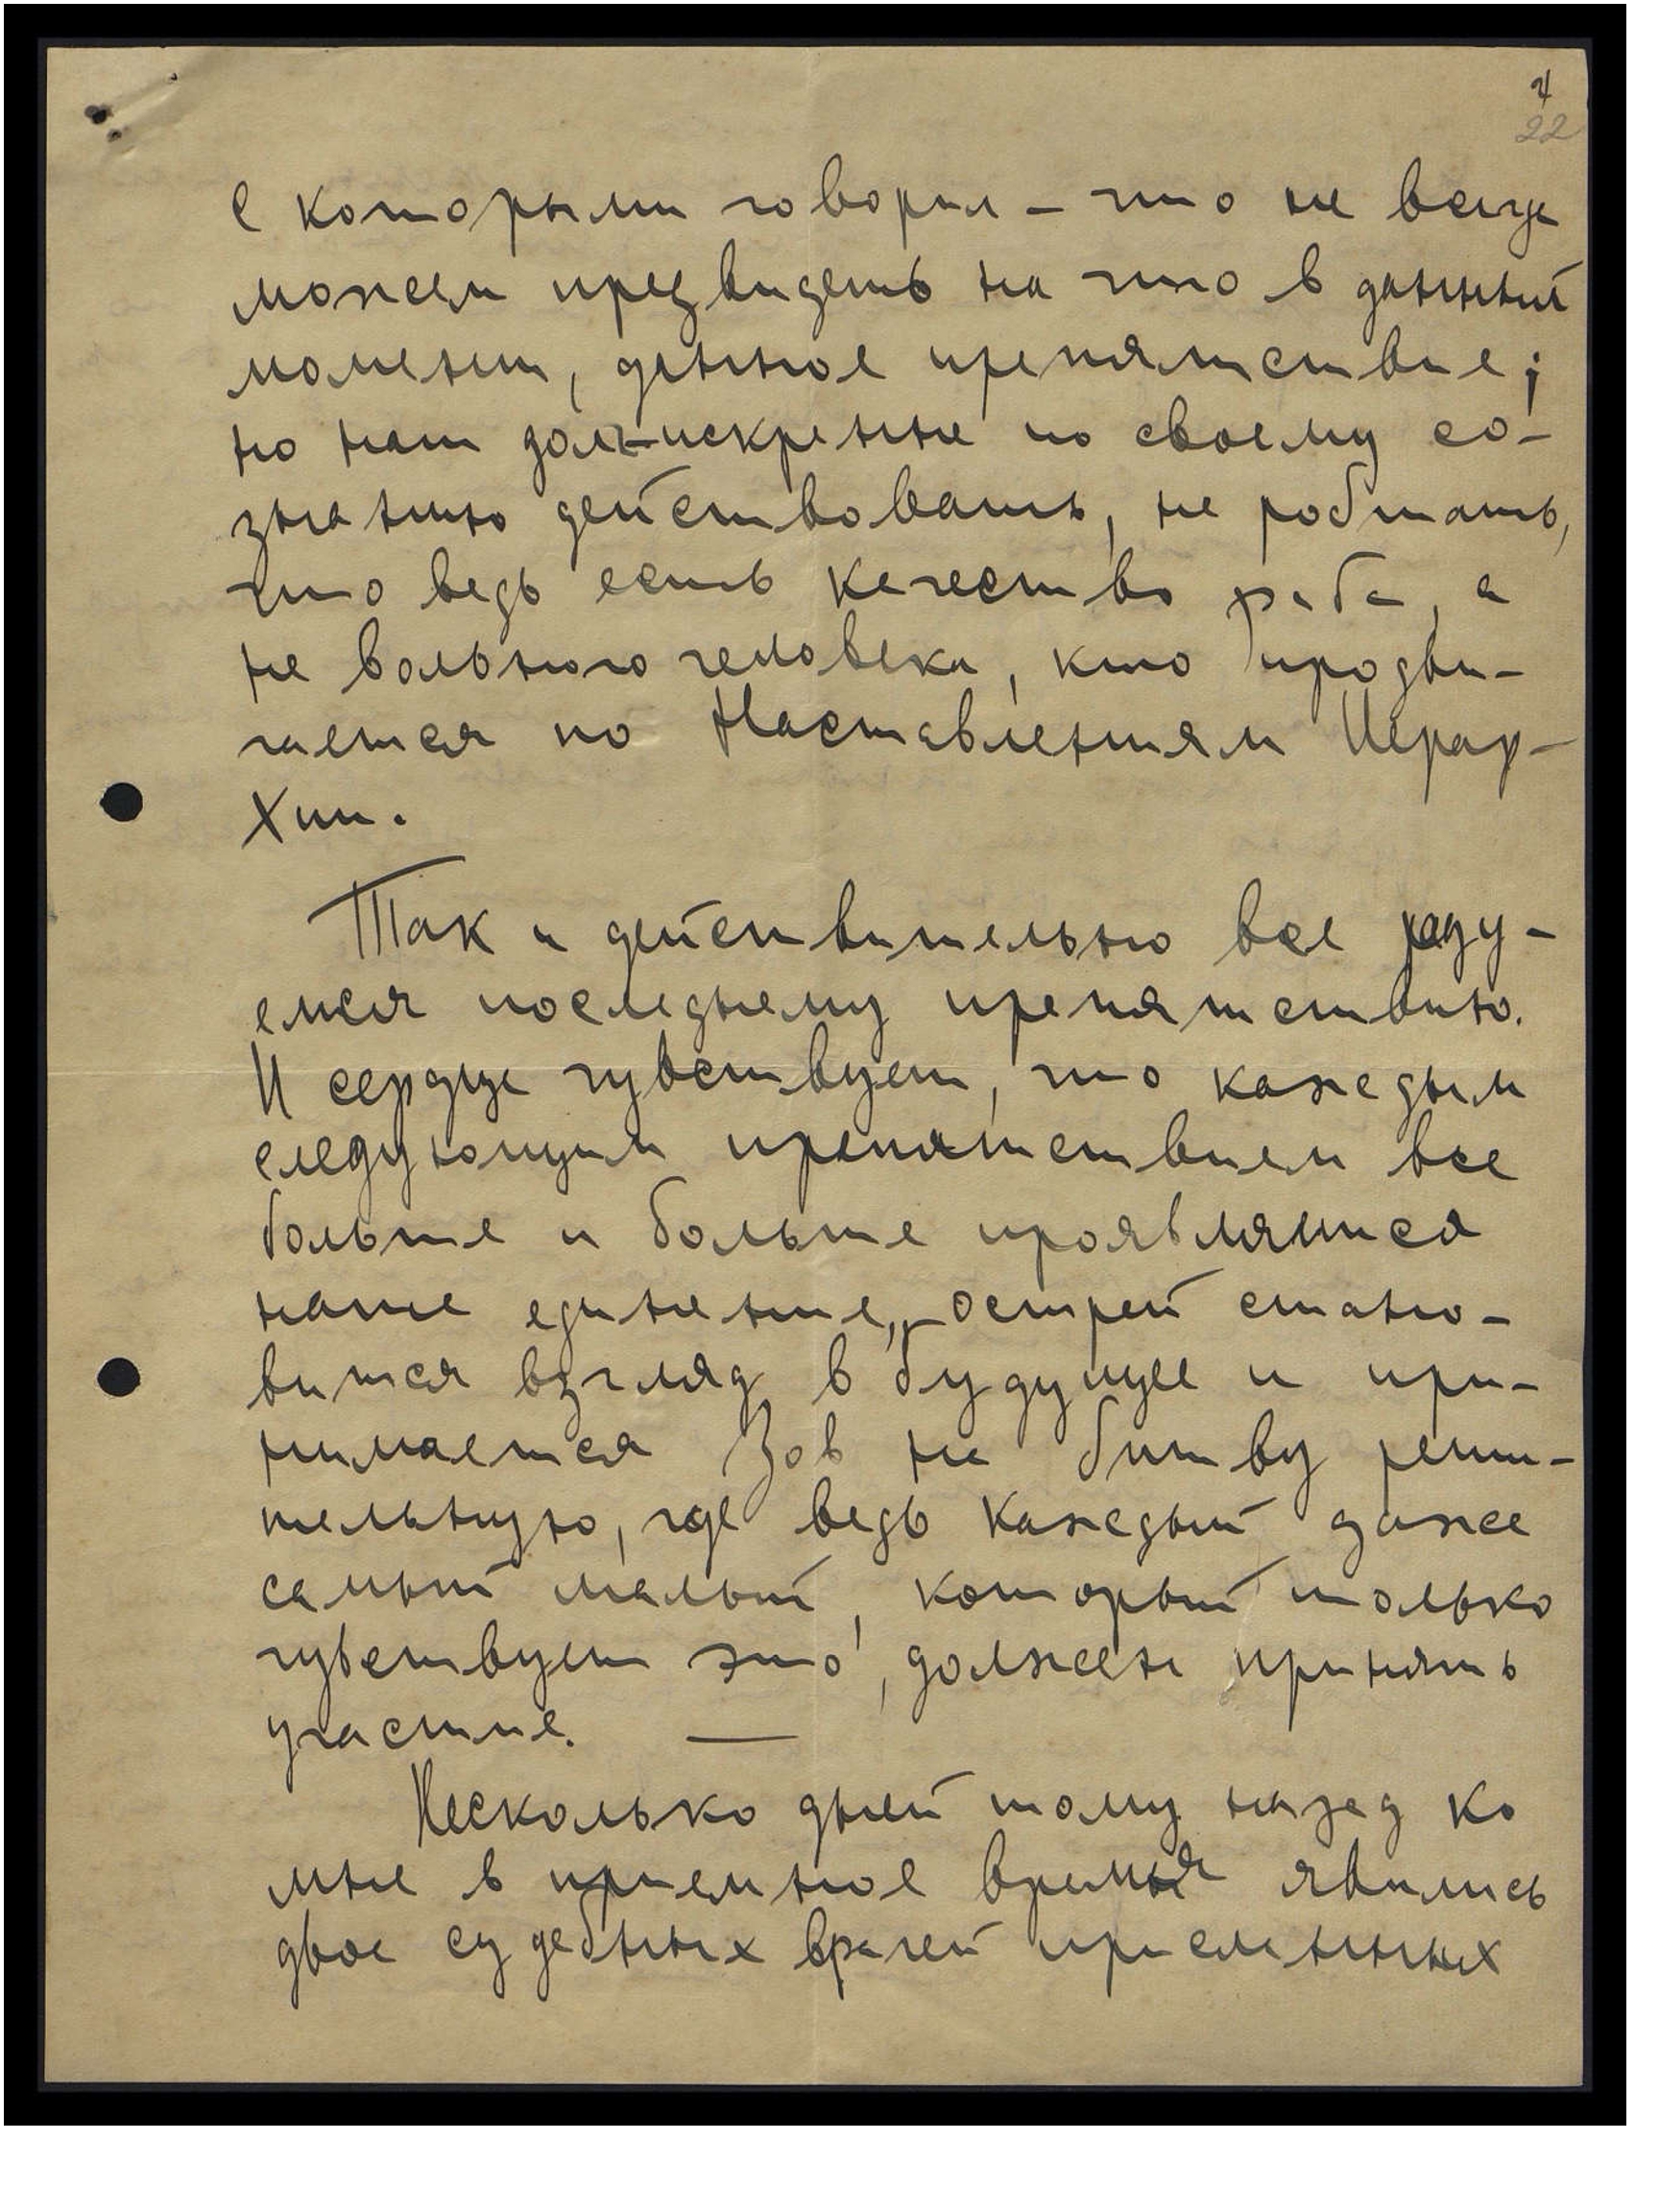 4
22
с которыми говорил – что не всегда
можем предвидеть на что в данный
момент, данное препятствие;
но наш долг искренне по своему со-
знанию действовать, не роптать,
что ведь есть качество раба, а
не вольного человека, кто продви-
гается по Наставлениям Иерар-
хии.
Так и действительно все раду-
емся последнему препятствию.
И сердце чувствует, что каждым
следующим препятствием все
больше и больше проявляется
наше единение, острей стано-
вится взгляд в будущее и при-
нимается Зов на битву реши-
тельную, где ведь каждый даже
самый малый, который только
чувствует это, должен принять
участие. —
Несколько дней тому назад ко
мне в приемное время явились
двое судебных врачей присланных